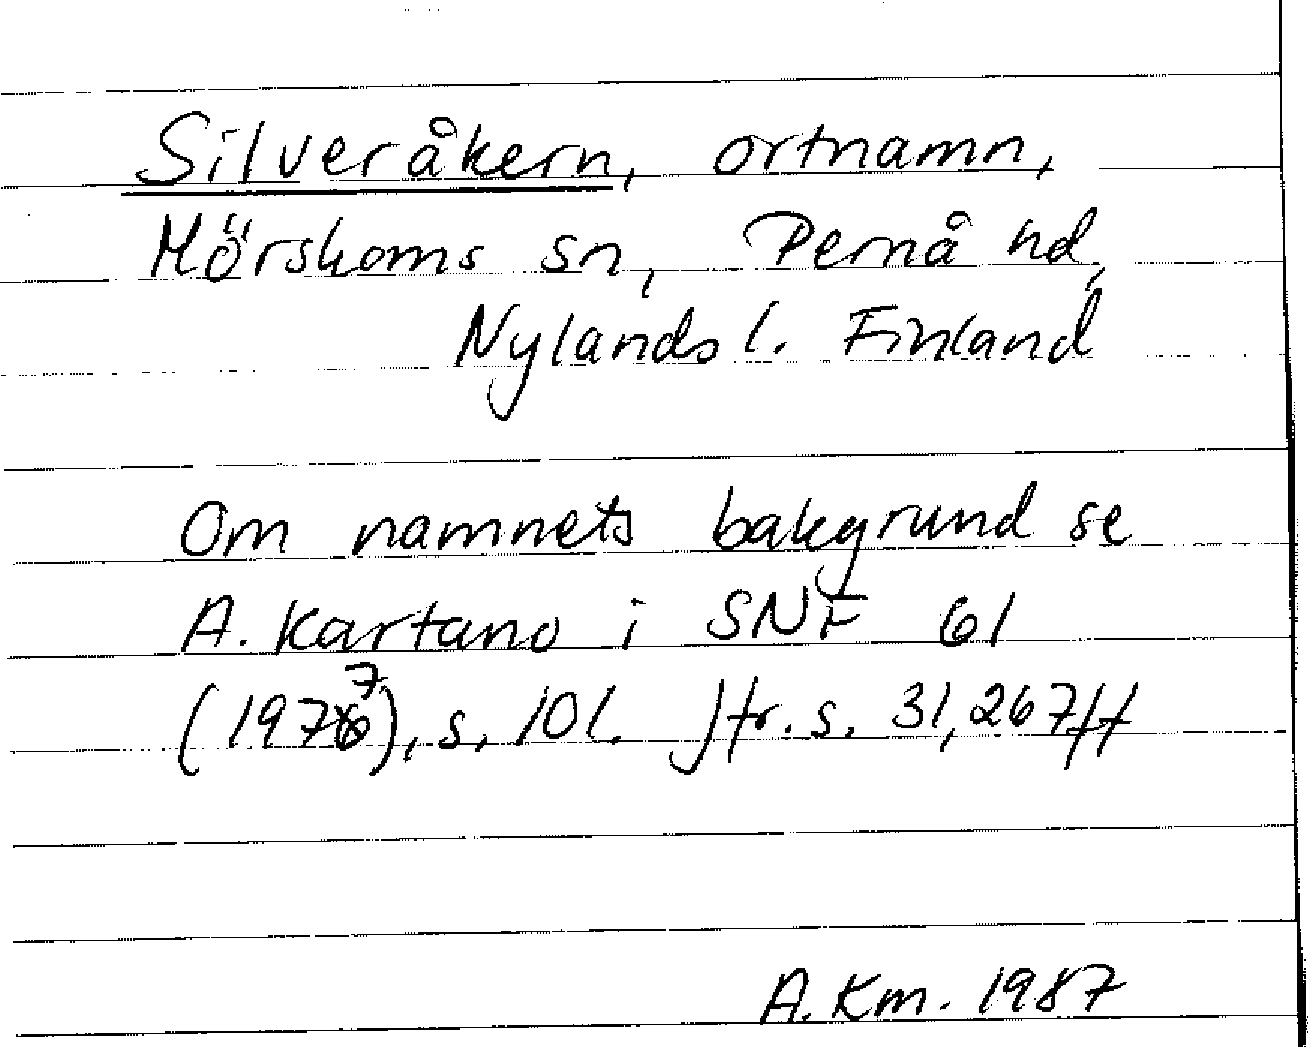 Silveråkern, ortnamn,
Mörskoms sn, Pernå hd,
Nylands l. Finland
Om namnets bakgrund se
A. Kartano i SNF 61
(1977), s, 101. Jfr. s. 31, 267 ff
A. Km. 1987